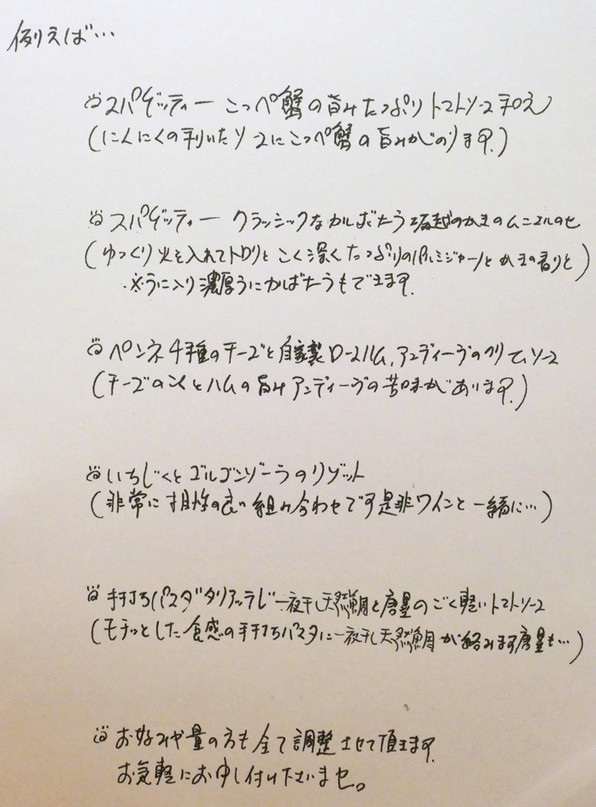 例えば…
スパゲッティー こっぺ蟹の旨みたっぷりトマトソース和え
(にんにくの利いたソースにこっぺ蟹の旨みがのります。)
スパゲッティー クラッシックなカルボナーラ 堀越のかきのムニエルのせ
(ゆっくり火を入れてトロリとこく深くたっぷりのパルミジャーノとかきの香りと)
※うに入り濃厚うにかるぼなーらもできます。
ペンネ 4種のチーズと自家製ロースハム、アンディーブのクリームソース
(チーズのこくとハムの旨みアンディーブの苦味があいます。)
いちじくとゴルゴンゾーラのリゾット
(非常に相性の良い組み合わせです是非ワインと一緒に…)
手打ちパスタ タリアッテレ 一夜干し天然鯛と唐墨のごく軽いトマトソース
(モチッとした食感の手打ちパスタに一夜干し天然鯛が絡みます唐墨も…)
お好みや量の方も全て調整させて頂きます。
お気軽にお申し付け下さいませ。